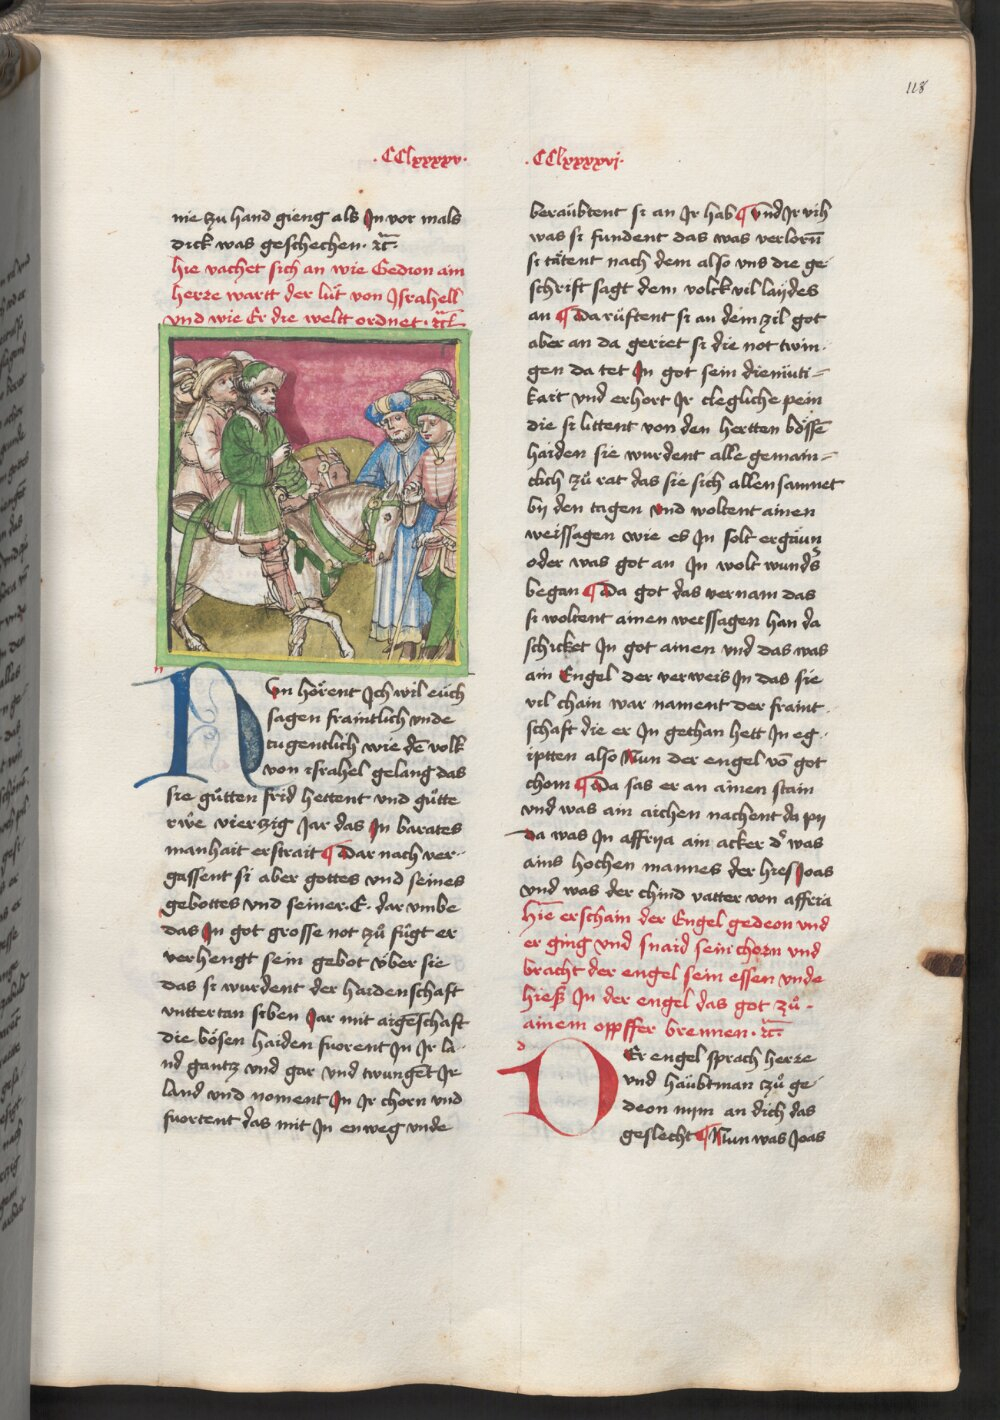 118
·CClxxxxv·
nie zu hand gieng als Jn vor mals
dick was geschechen· ꝛc̃·
hie vachet sich an wie Gedion ain
herre wartt der lüt von Jsrahell
vnd wie Er die weltt ordnet· ꝛc̃
Nun hörent Jch wil eüch
sagen fraintlich vnde
tugentlich wie dē volk
von israhel gelang das
sie gůtten frid hettent vnd gůtte
rwe vierzig Jar das Jn barates
manhait erstrait ¶ Dar nach ver-
gassent si aber gottes vnd seines
gebottes vnd seiner·E· dar vmbe
das Jn got grosse not zů fůgt er
verhengt sein gebot v̈ber sie
das si wurdent der haidenschaft
vnttertan siben Jar mit aigēschaft
die bösen haiden fuorent Jn Jr la-
nd gantz vnd gar vnd twungēt Jr
land vnd noment Jn Jr chorn vnd
fuortent das mit Jn enweg vnde
·CClxxxxvi·
beraübtent si an Jr hab ¶ vnd Jr vih
was si fundent das was verlorn̄
si tätent nach dem also vns die ge-
schrift sagt dem volck vil laydes
an ¶ Da rüftent si an dem zil got
aber an da geriet si die not twin-
gen da tet Jn got sein diemüti-
kait vnd erhort Jr clegliche pein
die si littent von den hertten bössē
haiden sie wurdent alle gemain-
clich zů rat das sie sich allen samnet
bij den tagen vnd woltent ainen
weissagen wie es Jn solt ergän
oder was got an Jn wolt wunds
began ¶ Da got das vernam das
si woltent ainen weissagen han da
schicket Jn got ainen vnd das was
ain Engel der verweis Jn das sie
vil chain war nament der fraint-
schaft die er Jn gethan hett Jn eg-
iptten also Nun der engel vō got
chom ¶ Da sas er an ainen stain
vnd was ain aichen nachent da pij
Da was Jn affrija ain acker d' was
ains hochen mannes der hies Joas
vnd was der chind vatter von affria
Hie erschain der Engel gedeon vnd
er ging vnd snaid sein chorn vnd
bracht der engel sein essen vnde
hieß Jn der engel das got zů-
ainem oppffer brennen· ꝛc̃·
DEr engel sprach herre
vnd haübtman zů ge-
deon nim an dich das
geslecht ¶ Nun was Joas